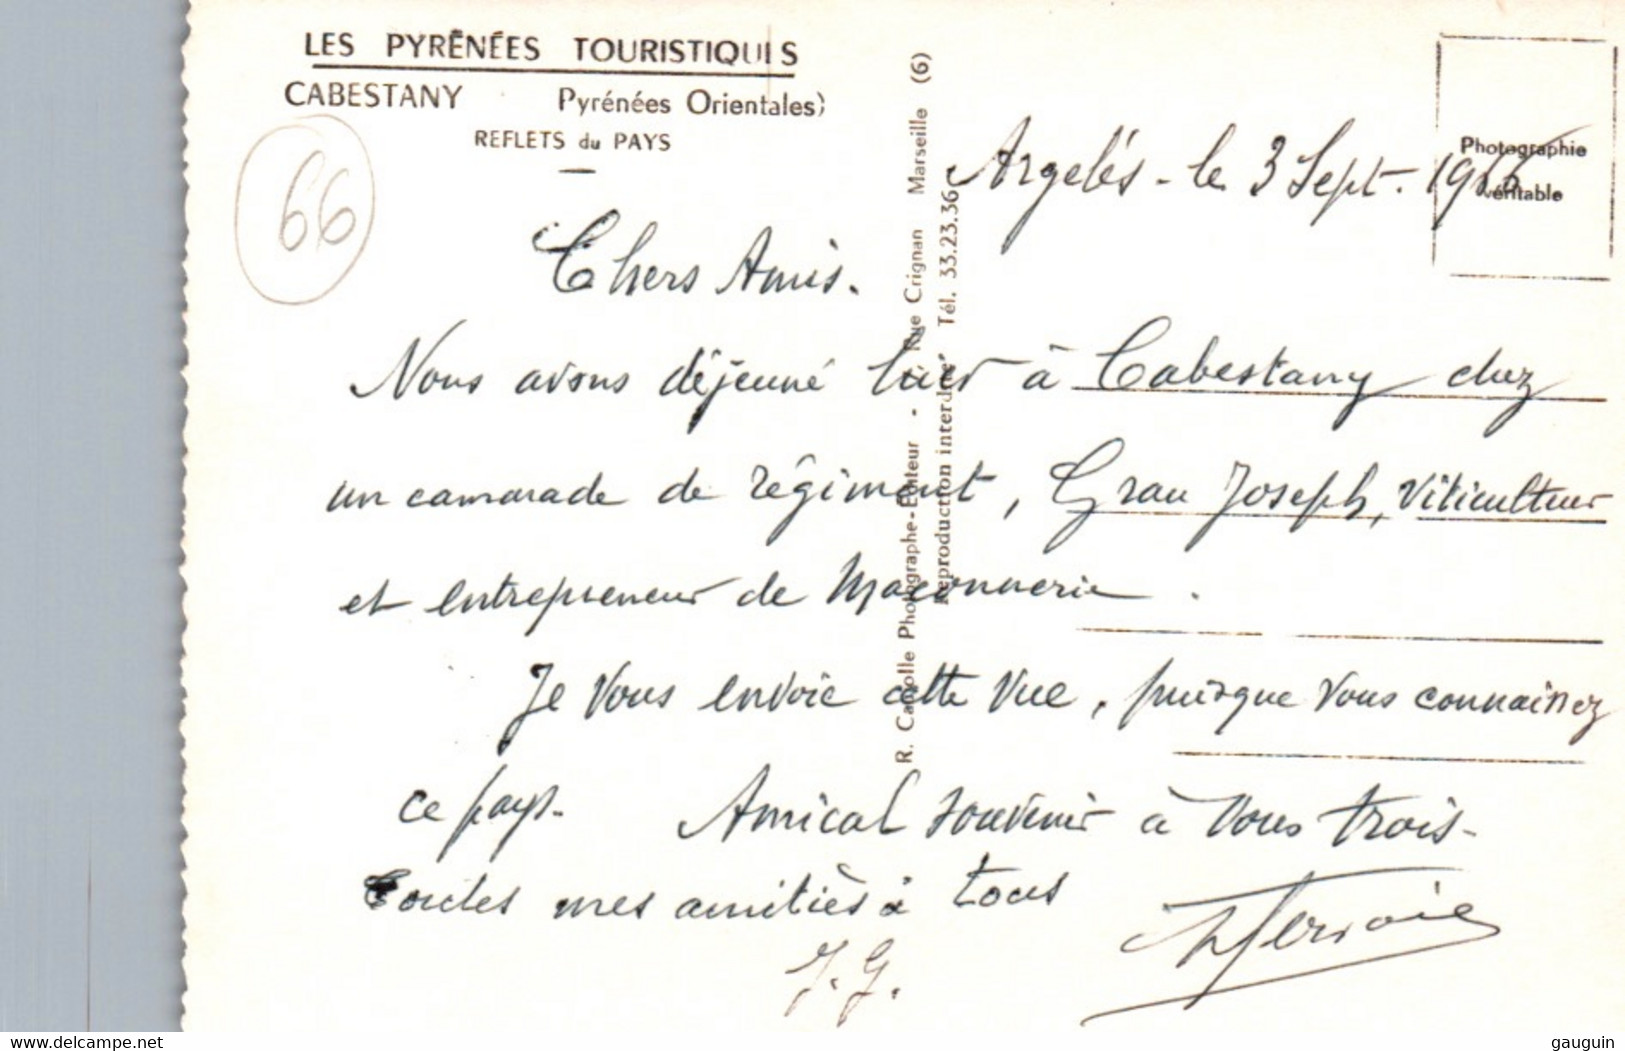 LES PYRÉNÉES TOURISTIQUES
CABESTANY Pyrénées Orientales)
REFLETS du PAYS
66
Photographie
véritable
R. Cazolle Photographe-Editeur - Rue Crignan Marseille (6)
Reproduction interdite Tél. 33.23.36
Argelés - le 3 Sept. 19
Chers Amis.
Nous avons déjeuné hier à Cabestany chez
un camarade de régiment, Grau Joseph, Viticulteur
et entrepreneur de Maçonnerie.
Je vous envoie cette vue, puisque vous connaissez
ce pays. Amical souvenir à vous trois -
Toutes mes amitiés à tous
J. G.
www.delcampe.net
gauguin